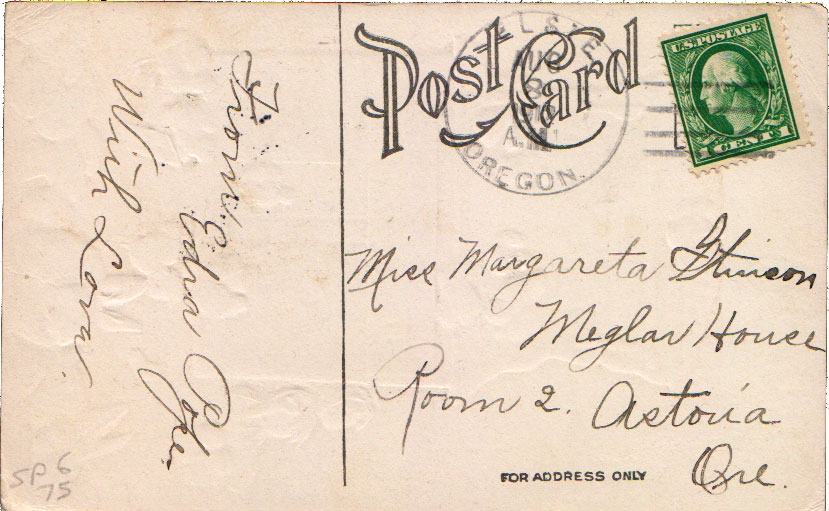 Post Card
AUG
8
A.M.
OREGON.
U.S. POSTAGE
1 CENT 1
From
Edna
With Love
Miss Margareta Stinson
Meglar House
Room 2. Astoria
Ore.
FOR ADDRESS ONLY
SP 6
75